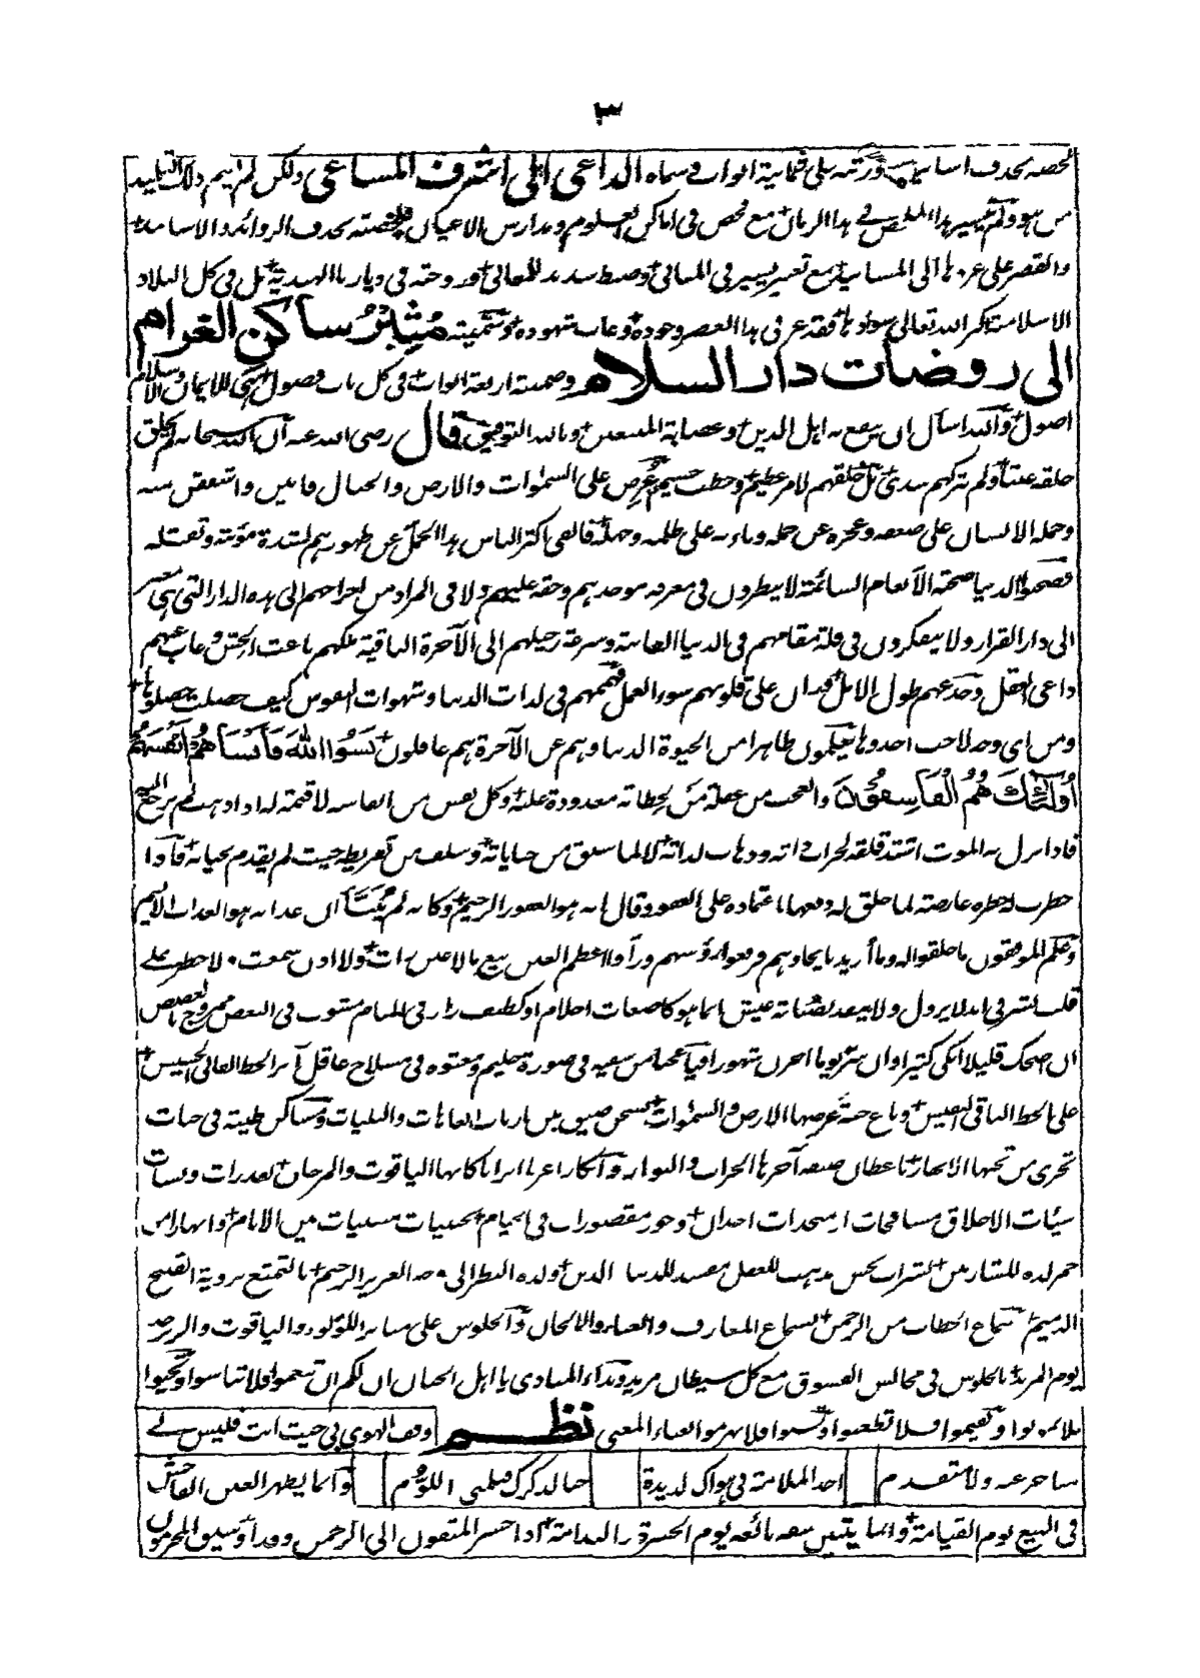 ٣
لخصه بحذف اسانيده ورتبه على ثمانية ابواب وسماه الداعي الى اشرف المساعي ولكن لم يتم ذلك التلخيص
من هو ولم يتيسر هذا الملخص في هذا الزمان مع فحص في اماكن العلوم ومدارس الاعيان فلخصته بحذف الزوائد والاسانيد
والقصر على عزوها الى المسانيد مع تغيير يسير في المباني وضبط سديد للمعاني وروحته في ديارنا الهندية بل في كل البلاد
الاسلامية كثر الله تعالى سوادها فقد عز في هذا العصر وجوده وغاب شهوده وسميته مثير ساكن الغرام
الى روضات دار السلام وضمنته اربعة ابواب في كل باب فصول هي للايمان والاسلام
اصول والله اسأل ان ينفع به اهل الدين وعصابة المتبعين وبالله التوفيق قال رضى الله عنه ان الله سبحانه لم يخلق
خلقه عبثا ولم يتركهم سدى بل خلقهم لامر عظيم وخطب جسيم عرض على السموات والارض والجبال فابين واشفقن منه
وحمله الانسان على ضعفه وعجزه عن حمله وباء به على ظلمه وجهله فالقى اكثر الناس هذا الحمل عن ظهورهم لشدة مؤنته وثقله
فصحبوا الدنيا صحبة الانعام السائمة لا ينظرون في معرفة موجدهم وحقه عليهم ولا في المراد من اخراجهم الى هذه الدار التي هي معبر
الى دار القرار ولا يتفكرون في قلة مقامهم في الدنيا الفانية وسرعة رحيلهم الى الآخرة الباقية ملكهم باعث الحس وغاب عنهم
داعى العقل وخدعهم طول الامل وران على قلوبهم سوء العمل فهممهم في لذات الدنيا وشهوات النفوس كيف حصلت حصلوها
ومن اى وجه لاحت اخذوها يعلمون ظاهرا من الحيوة الدنيا وهم عن الآخرة هم غافلون نَسُوا اللهَ فَأَنْسَاهُمْ أَنْفُسَهُمْ
أُولَٰئِكَ هُمُ الْفَاسِقُونَ والعجب من غفلة من لحظاته معدودة عليه وكل نفس من انفاسه لا قيمة له اذا ذهب لم يرجع اليه
فاذا نزل به الموت اشتد قلقه لخراب ذاته وذهاب لذاته لا لما سبق من جناياته وسلف من تفريطه حيث لم يقدم لحياته فاذا
خطرت له خطرة عارضة لما خلق له دفعها باعتماده على العفو وقال انه هو الغفور الرحيم وكانه لم ينبأ ان عذابه هو العذاب الاليم
وعلم الموفقون ما خلقوا له وما أريد بايجادهم فرفعوا رؤسهم ورأوا اعظم الغبن بيع ما لا عين رات ولا اذن سمعت ولا خطر على
قلب بشر في ابد لا يزول ولا ينفد بصبابة عيش انما هو كاضغاث احلام او كطيف زار في المنام مشوب في النغص ممزوج بالغصص
ان اضحك قليلا ابكى كثيرا وان سر يوما احزن شهورا فيا عجبا من سفيه في صورة حليم ومعتوه في مسلاخ عاقل آثر الحظ الفاني الخسيس
على الحظ الباقي النفيس وباع جنة عرضها الارض والسموات بسجن ضيق بين ارباب العاهات والبليات ومساكن طيبة في جنات
تجرى من تحتها الانهار باعطان ضيقة آخرها الخراب والبوار وابكارا عربا اترابا كانها الياقوت والمرجان بقذرات دنسات
سيئات الاخلاق مسافحات او متخذات اخدان وحور مقصورات في الخيام بخبيثات مسبيات بين الانام وانهارا من
خمر لذة للشاربين بشراب نجس مذهب للعقل مفسد للدنيا والدين ولذة النظر الى وجه العزيز الرحيم بالتمتع برؤية القبيح
الذميم وسماع الخطاب من الرحمن بسماع المعازف والغناء والالحان والجلوس على منابر اللؤلؤ والياقوت والزبرجد
يوم المزيد بالجلوس في مجالس الفسوق مع كل شيطان مريد ونداء المنادى يا اهل الجنان ان لكم ان تنعموا فلا تباسوا وتحيوا
فلا تموتوا وتقيموا فلا تظعنوا وتشبوا فلا تهرموا بغناء المغنى نظم وقف الهوى بي حيث انت فليس لي
متاخر عنه ولا متقدم اجد الملامة في هواك لذيذة حبا لذكرك فليلمني اللوم وانما يظهر الغبن الفاحش
في البيع يوم القيامة وانما يتبين سفه بائعه يوم الحسرة والندامة اذا حشر المتقون الى الرحمن وفدا وسيق المجرمون